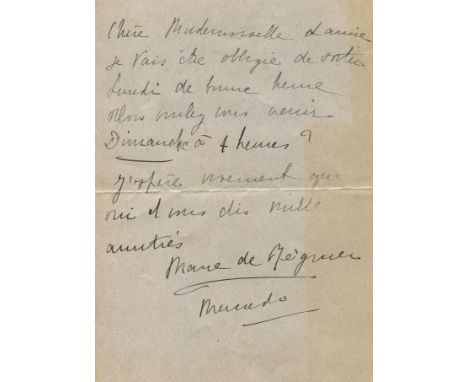 Chère Mademoiselle
je vais être obligée de sortir
Lundi de bonne heure
Alors voulez vous venir
Dimanche à 4 heures ?
J'espère vivement que
oui et vous dis mille
amitiés
Marie de Régnier
Mercredi